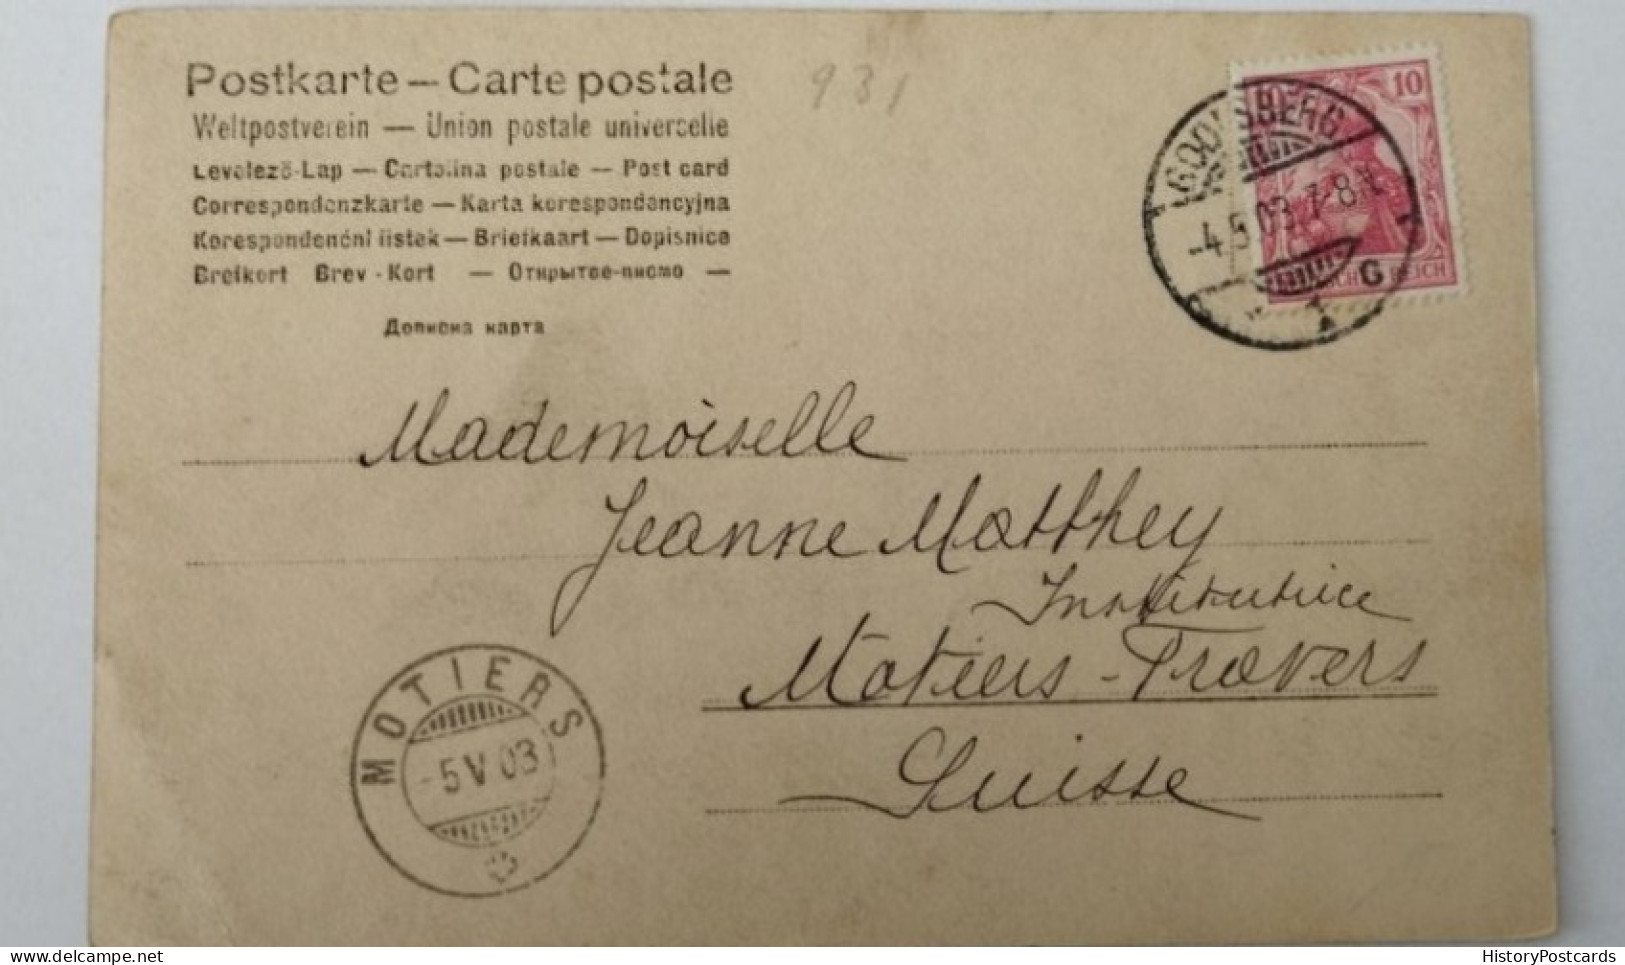 Postkarte — Carte postale
Weltpostverein — Union postale universelle
Levelező-Lap — Cartolina postale — Post card
Correspondenzkarte — Karta korespondencyjna
Korespondenční lístek — Briefkaart — Dopisnice
Brefkort Brev-Kort — Открытое письмо —
Дописна карта
931
10
GODESBERG
-4.5.03.7-8
G
REICH
Mademoiselle
Jeanne Matthey
Institutrice
Motiers-Travers
Suisse
MOTIERS
-5 V 03
HistoryPostcards